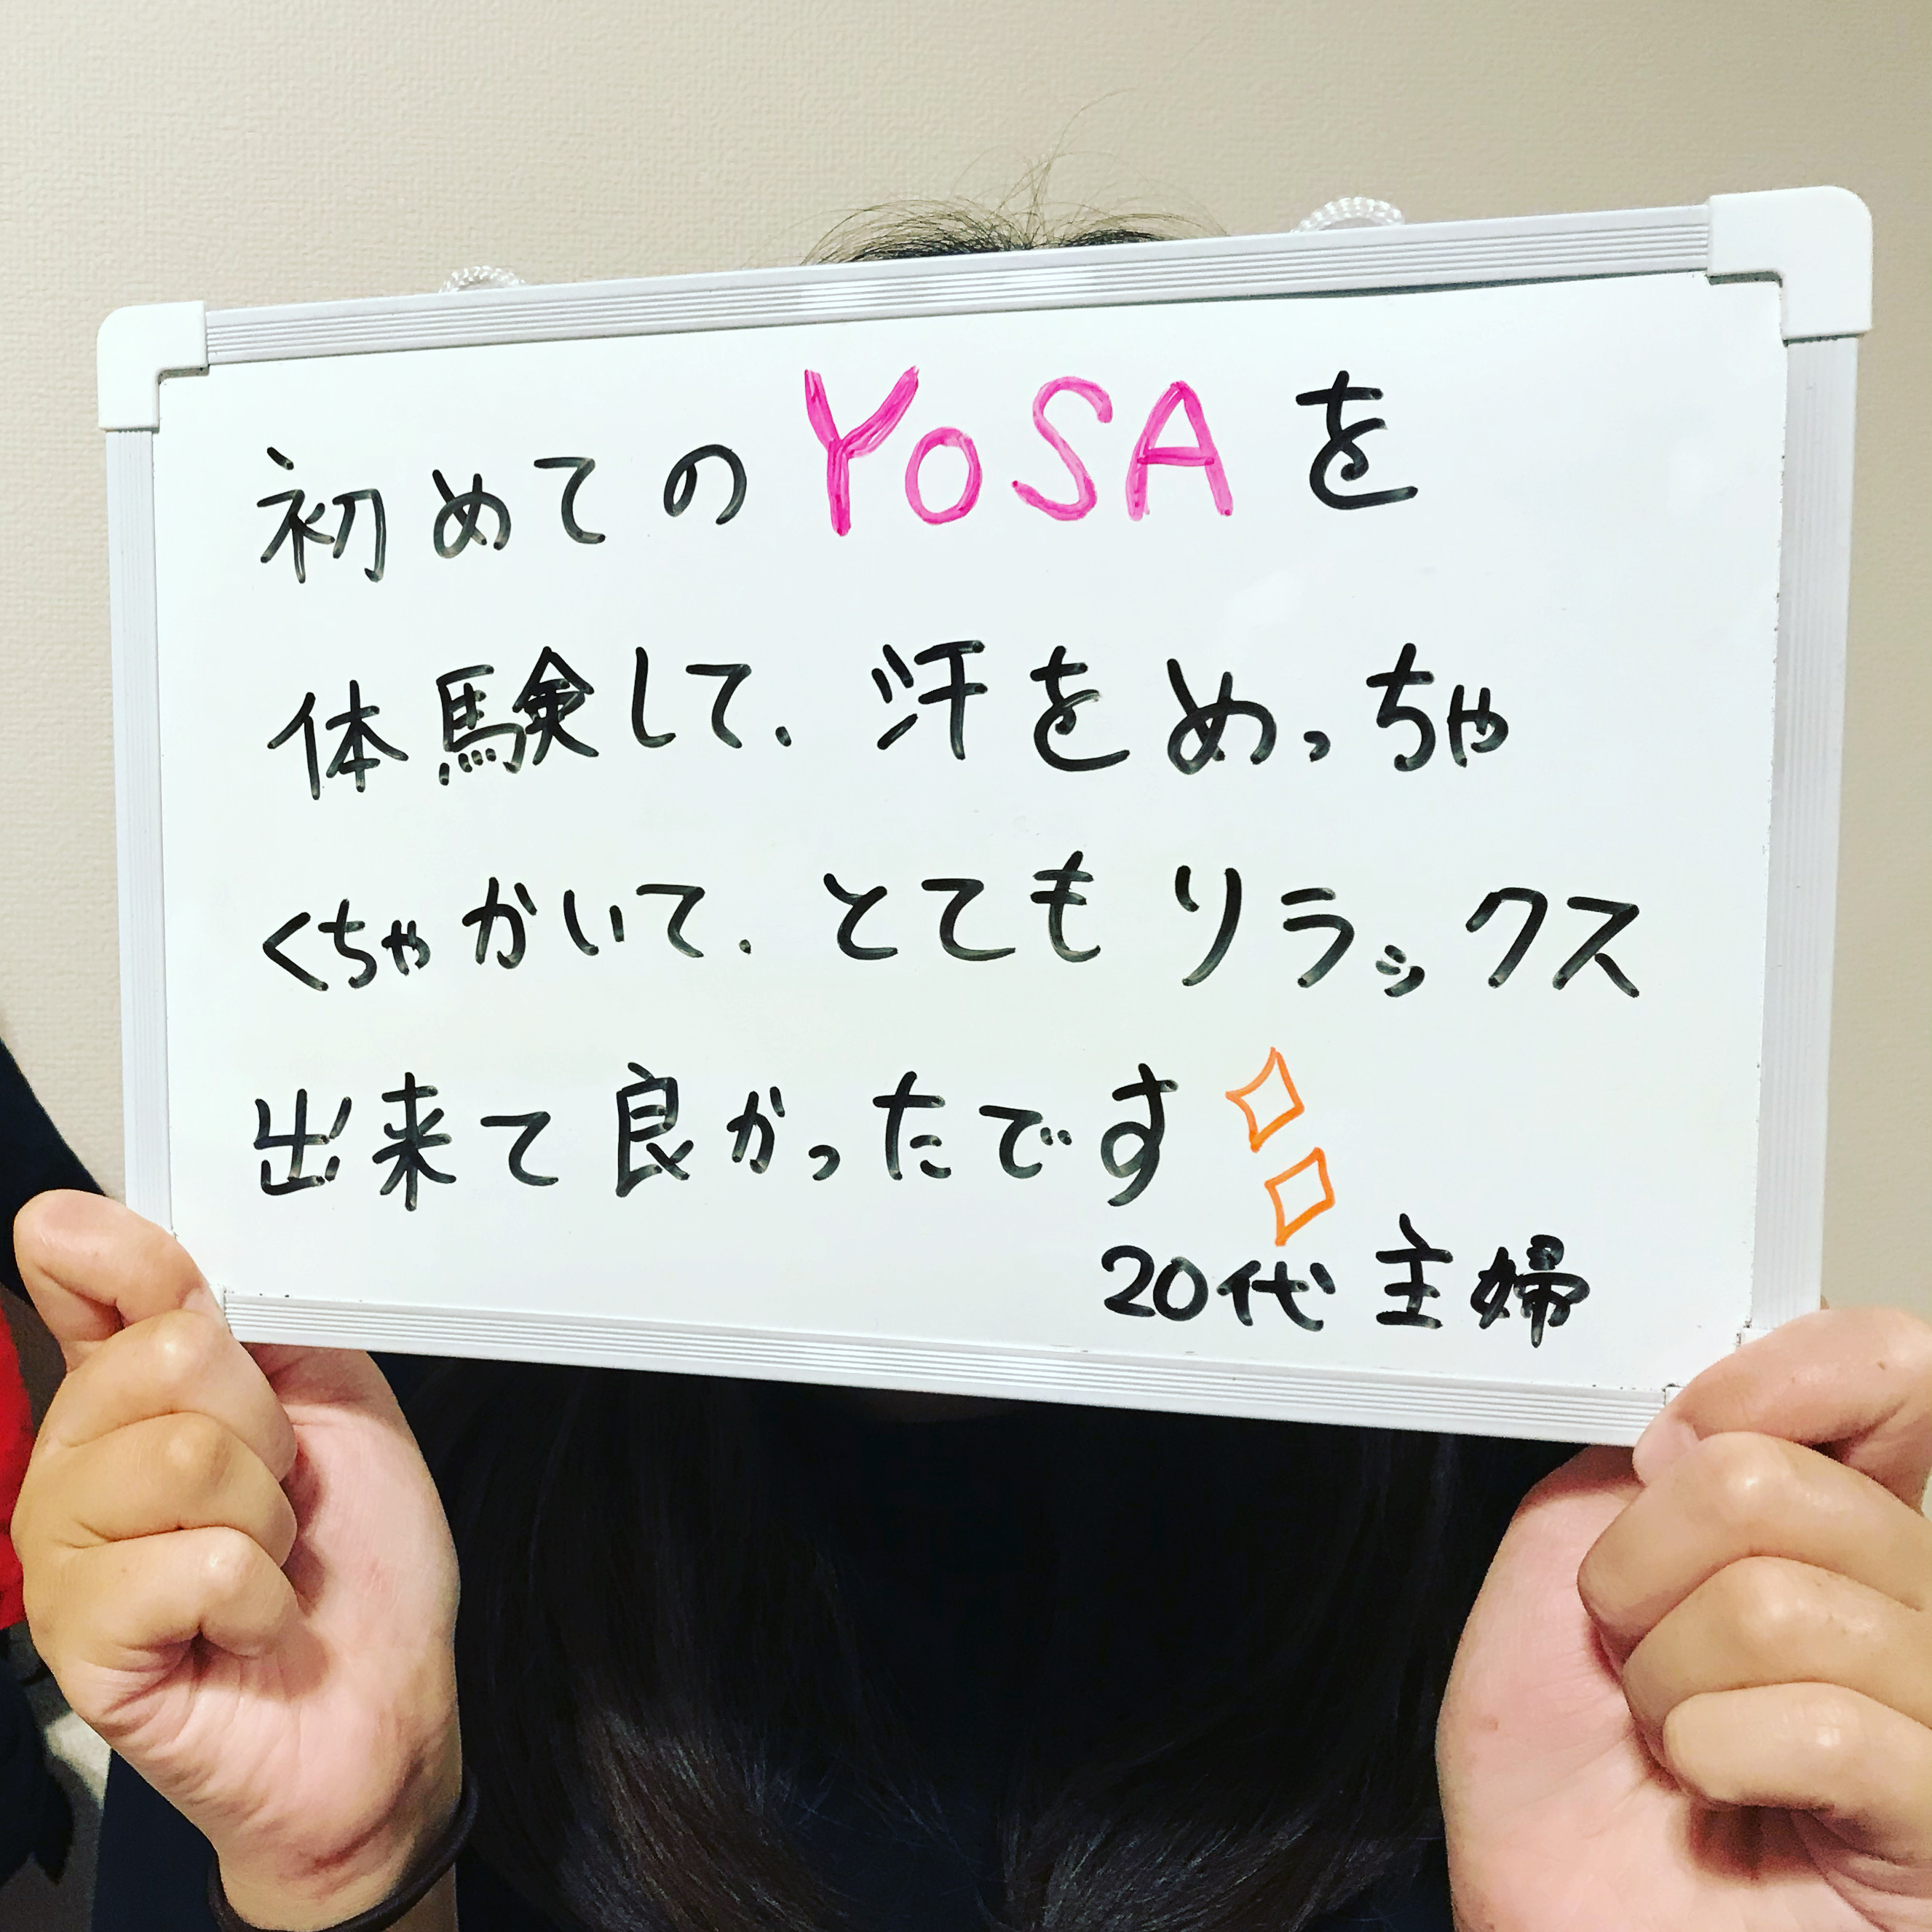 初めてのYOSAを
体験して、汗をめっちゃ
くちゃかいて、とてもリラックス
出来て良かったです
20代 主婦